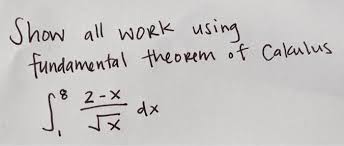 Show all work using
fundamental theorem of Calculus
∫₁⁸ (2-x)/√x dx